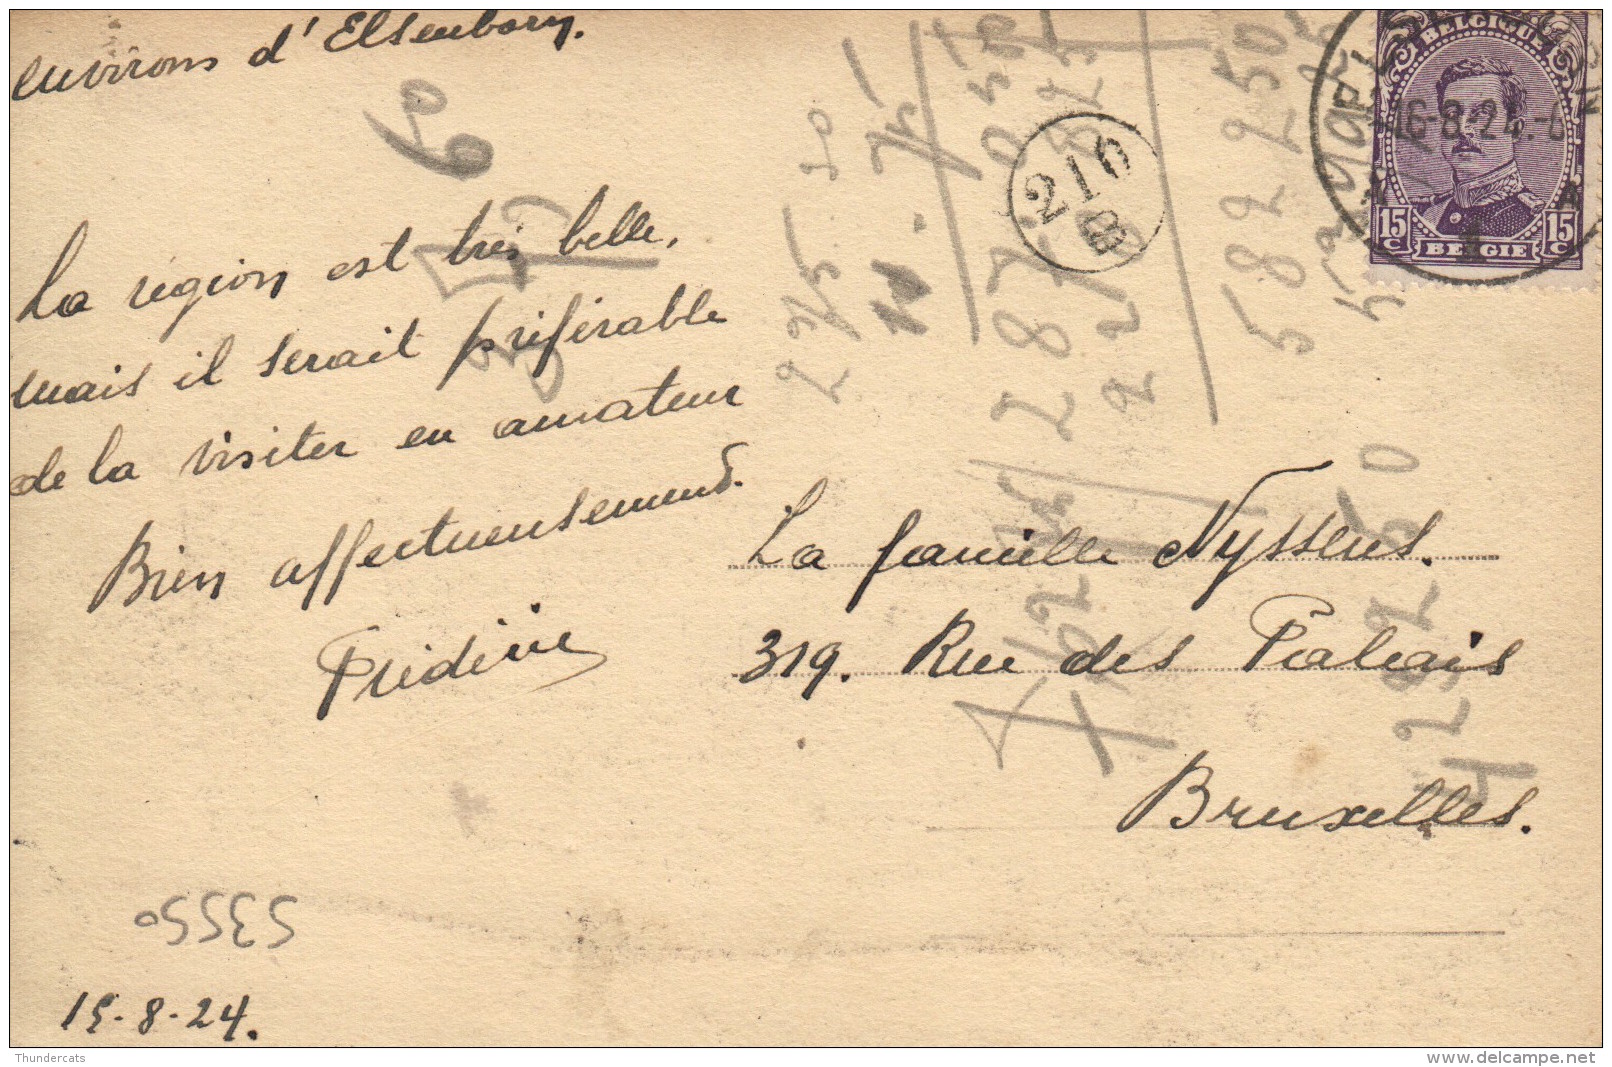 environs d'Elsenborn.
La région est très belle,
mais il serait préférable
de la visiter en amateur
Bien affectueusement.
Frédéric
15-8-24.
53550
BELGIQUE
15 C 15 C
BELGIE
16-8-24.
1
216
B
La famille Nyssens.
319. Rue des Palais
Bruxelles.
582 250
Thundercats
delcampe.net